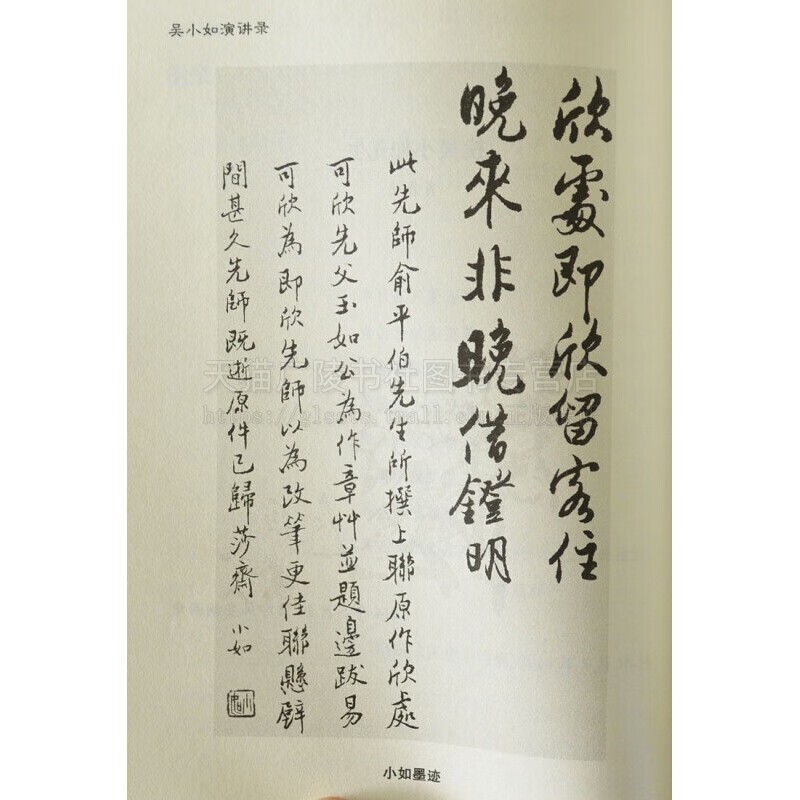 吴小如演讲录
欣處即欣留客住
晚來非晚借鐙明
此先師俞平伯先生所撰上聯原作欣處
可欣先父玉如公為作章艸並題邊跋易
可欣為即欣先師以為改筆更佳聯懸壁
間甚久先師既逝原件已歸莎齋 小如
天猫 陵书社图 专营店
小如墨迹